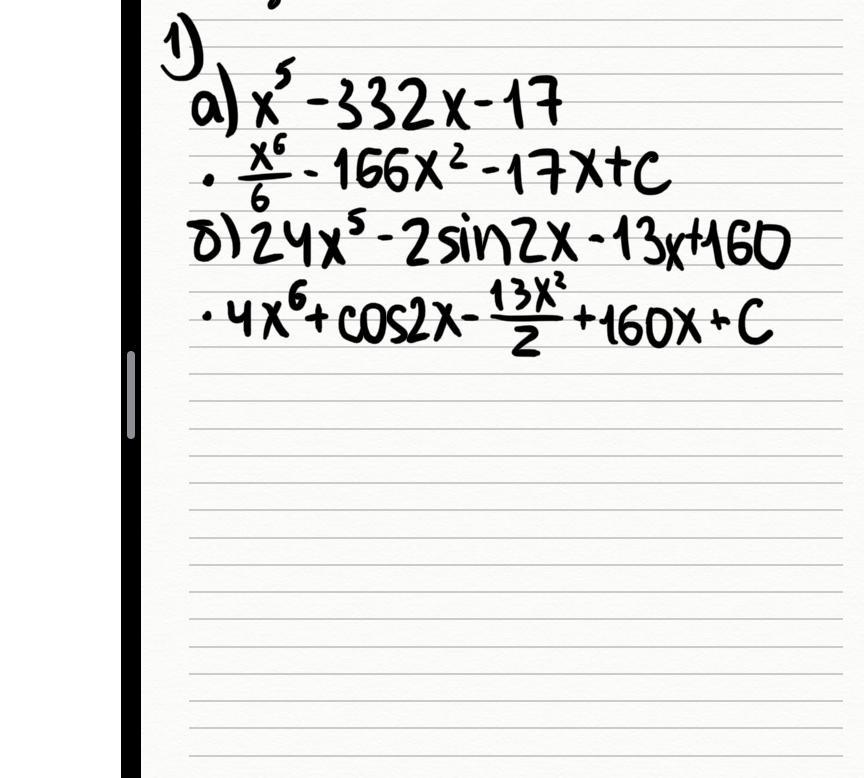 1)
а) x⁵ - 332x - 17
· x⁶/6 - 166x² - 17x + C
б) 24x⁵ - 2sin2x - 13x + 160
· 4x⁶ + cos2x - 13x²/2 + 160x + C